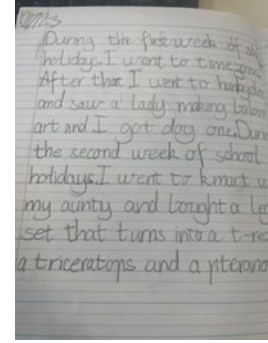 During the first week of
holidays I went to timezone.
After that I went to
and saw a lady making
art and I got dog one. During
the second week of school
holidays. I went to kmart
my aunty and bought a
set that turns into a
a triceratops and a